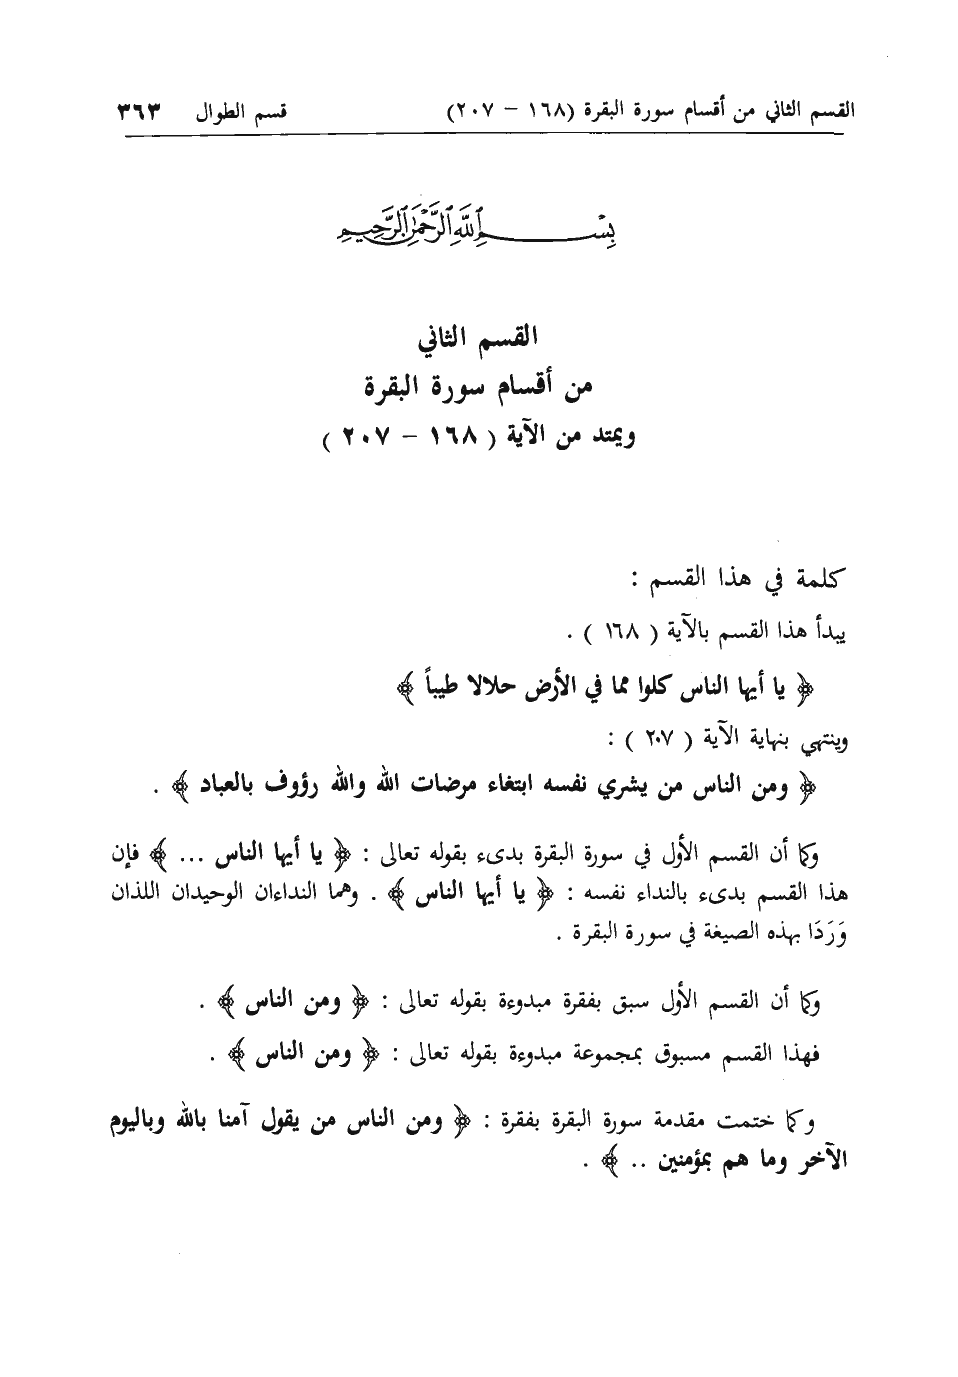 القسم الثاني من أقسام سورة البقرة (١٦٨ – ٢٠٧) قسم الطوال ٣٦٣
بسم الله الرحمن الرحيم
القسم الثاني
من أقسام سورة البقرة
ويمتد من الآية ( ١٦٨ – ٢٠٧ )
كلمة في هذا القسم :
يبدأ هذا القسم بالآية ( ١٦٨ ) .
﴿ يا أيها الناس كلوا مما في الأرض حلالا طيباً ﴾
وينتهي بنهاية الآية ( ٢٠٧ ) :
﴿ ومن الناس من يشري نفسه ابتغاء مرضات الله والله رؤوف بالعباد ﴾ .
وكما أن القسم الأول في سورة البقرة بدىء بقوله تعالى : ﴿ يا أيها الناس ... ﴾ فإن
هذا القسم بدىء بالنداء نفسه : ﴿ يا أيها الناس ﴾ . وهما النداءان الوحيدان اللذان
وَرَدَا بهذه الصيغة في سورة البقرة .
وكما أن القسم الأول سبق بفقرة مبدوءة بقوله تعالى : ﴿ ومن الناس ﴾ .
فهذا القسم مسبوق بمجموعة مبدوءة بقوله تعالى : ﴿ ومن الناس ﴾ .
وكما ختمت مقدمة سورة البقرة بفقرة : ﴿ ومن الناس من يقول آمنا بالله وباليوم
الآخر وما هم بمؤمنين .. ﴾ .